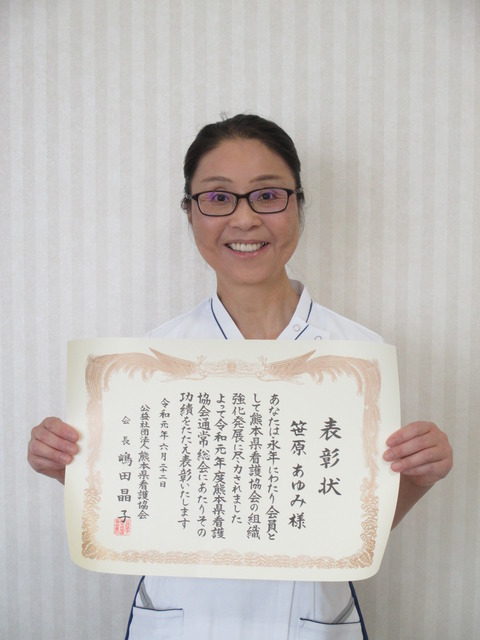 表彰状
笹原 あゆみ 様
あなたは永年にわたり会員と
して熊本県看護協会の組織
強化発展に尽力されました
よって令和元年度熊本県看護
協会通常総会にあたりその
功績をたたえ表彰いたします
令和元年六月二十二日
公益社団法人熊本県看護協会
会長 嶋田晶子